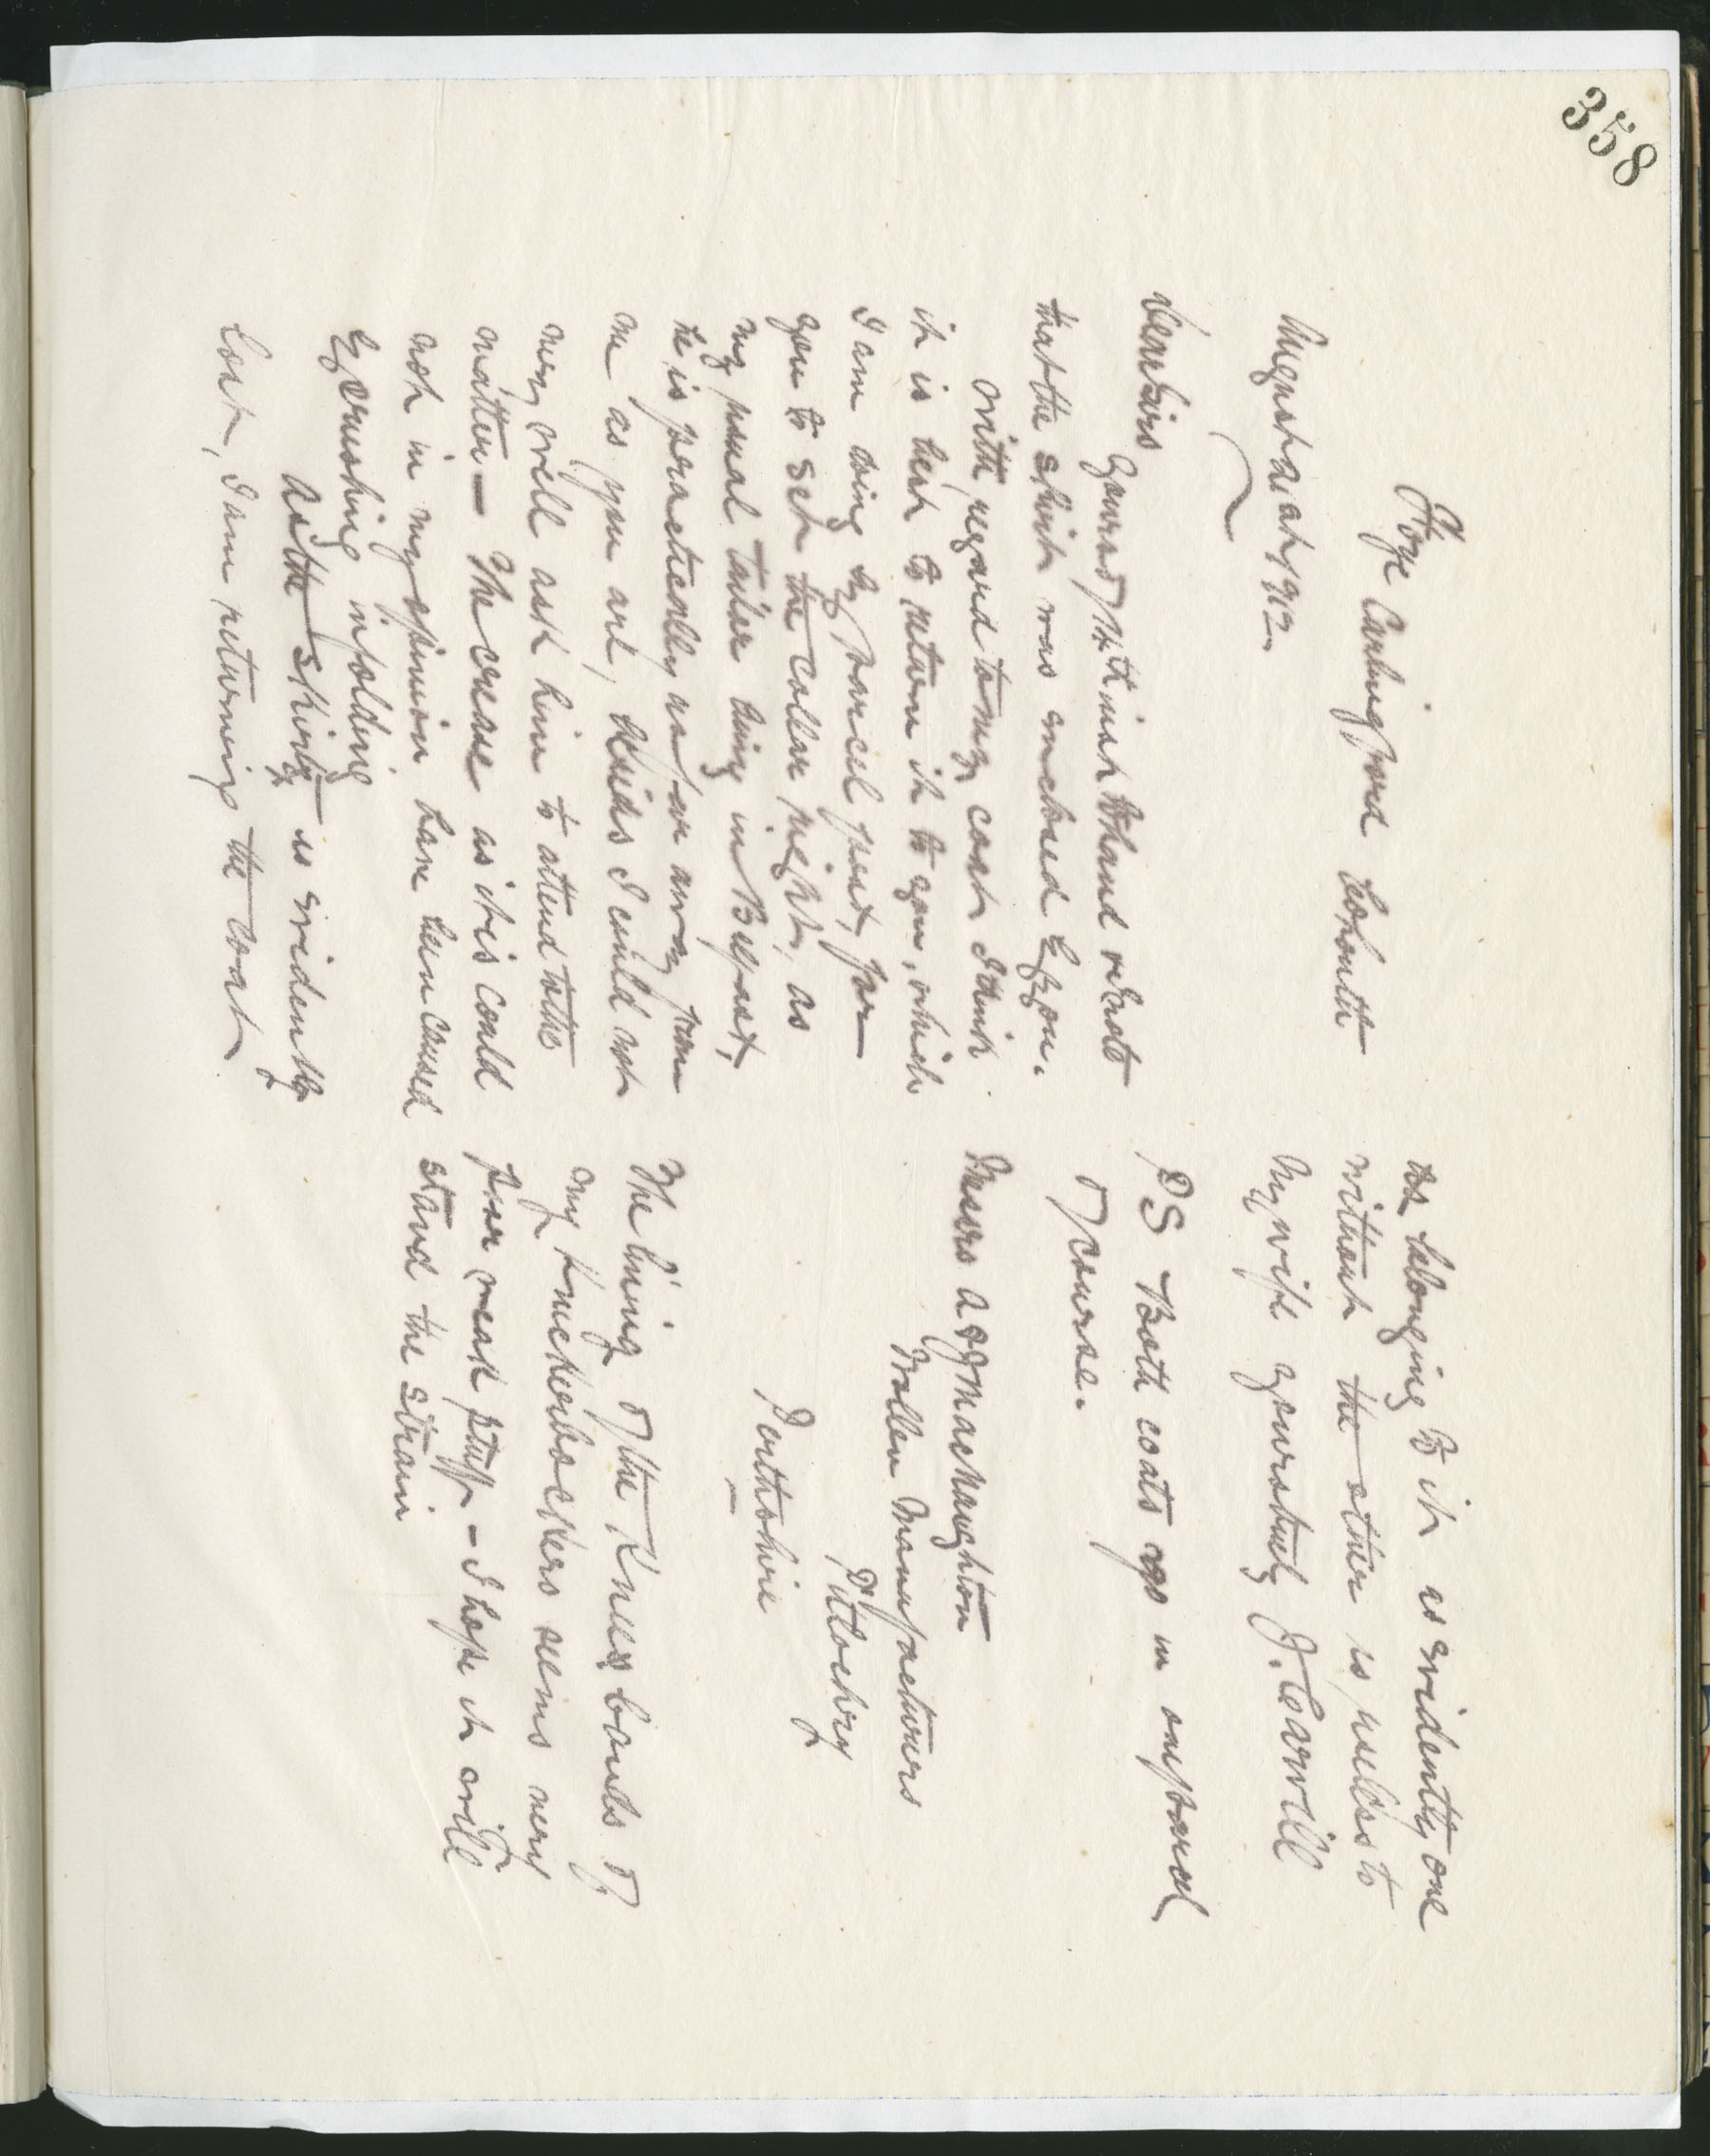 358
Foye Carlingford Co Louth
August 21st 1912
Dear Sirs
Yours of 17th inst to hand re coats
that the skirt was enclosed by you.
With regard to my coat I think
it is best to return it to you, which
I am doing by parcel post, for
you to set the collar right, as
my usual tailor being in Belfast,
he is practically as far away from
me as you are, besides I could not
very well ask him to attend to the
matter — The crease as it is could
not in my opinion have been caused
by crushing in folding
As the skirt is evidently
lost, I am returning the coat
as belonging to it as evidently one
without the other is useless to
my wife Yours truly J. Carvill
PS Both coats go in one parcel
of course.
Messrs A & J Macnaughton
Woollen Manufacturers
Pitlochry
Perthshire
The lining of the Knee bands of
my Knickerbockers seems very
poor weak stuff — I hope it will
stand the strain